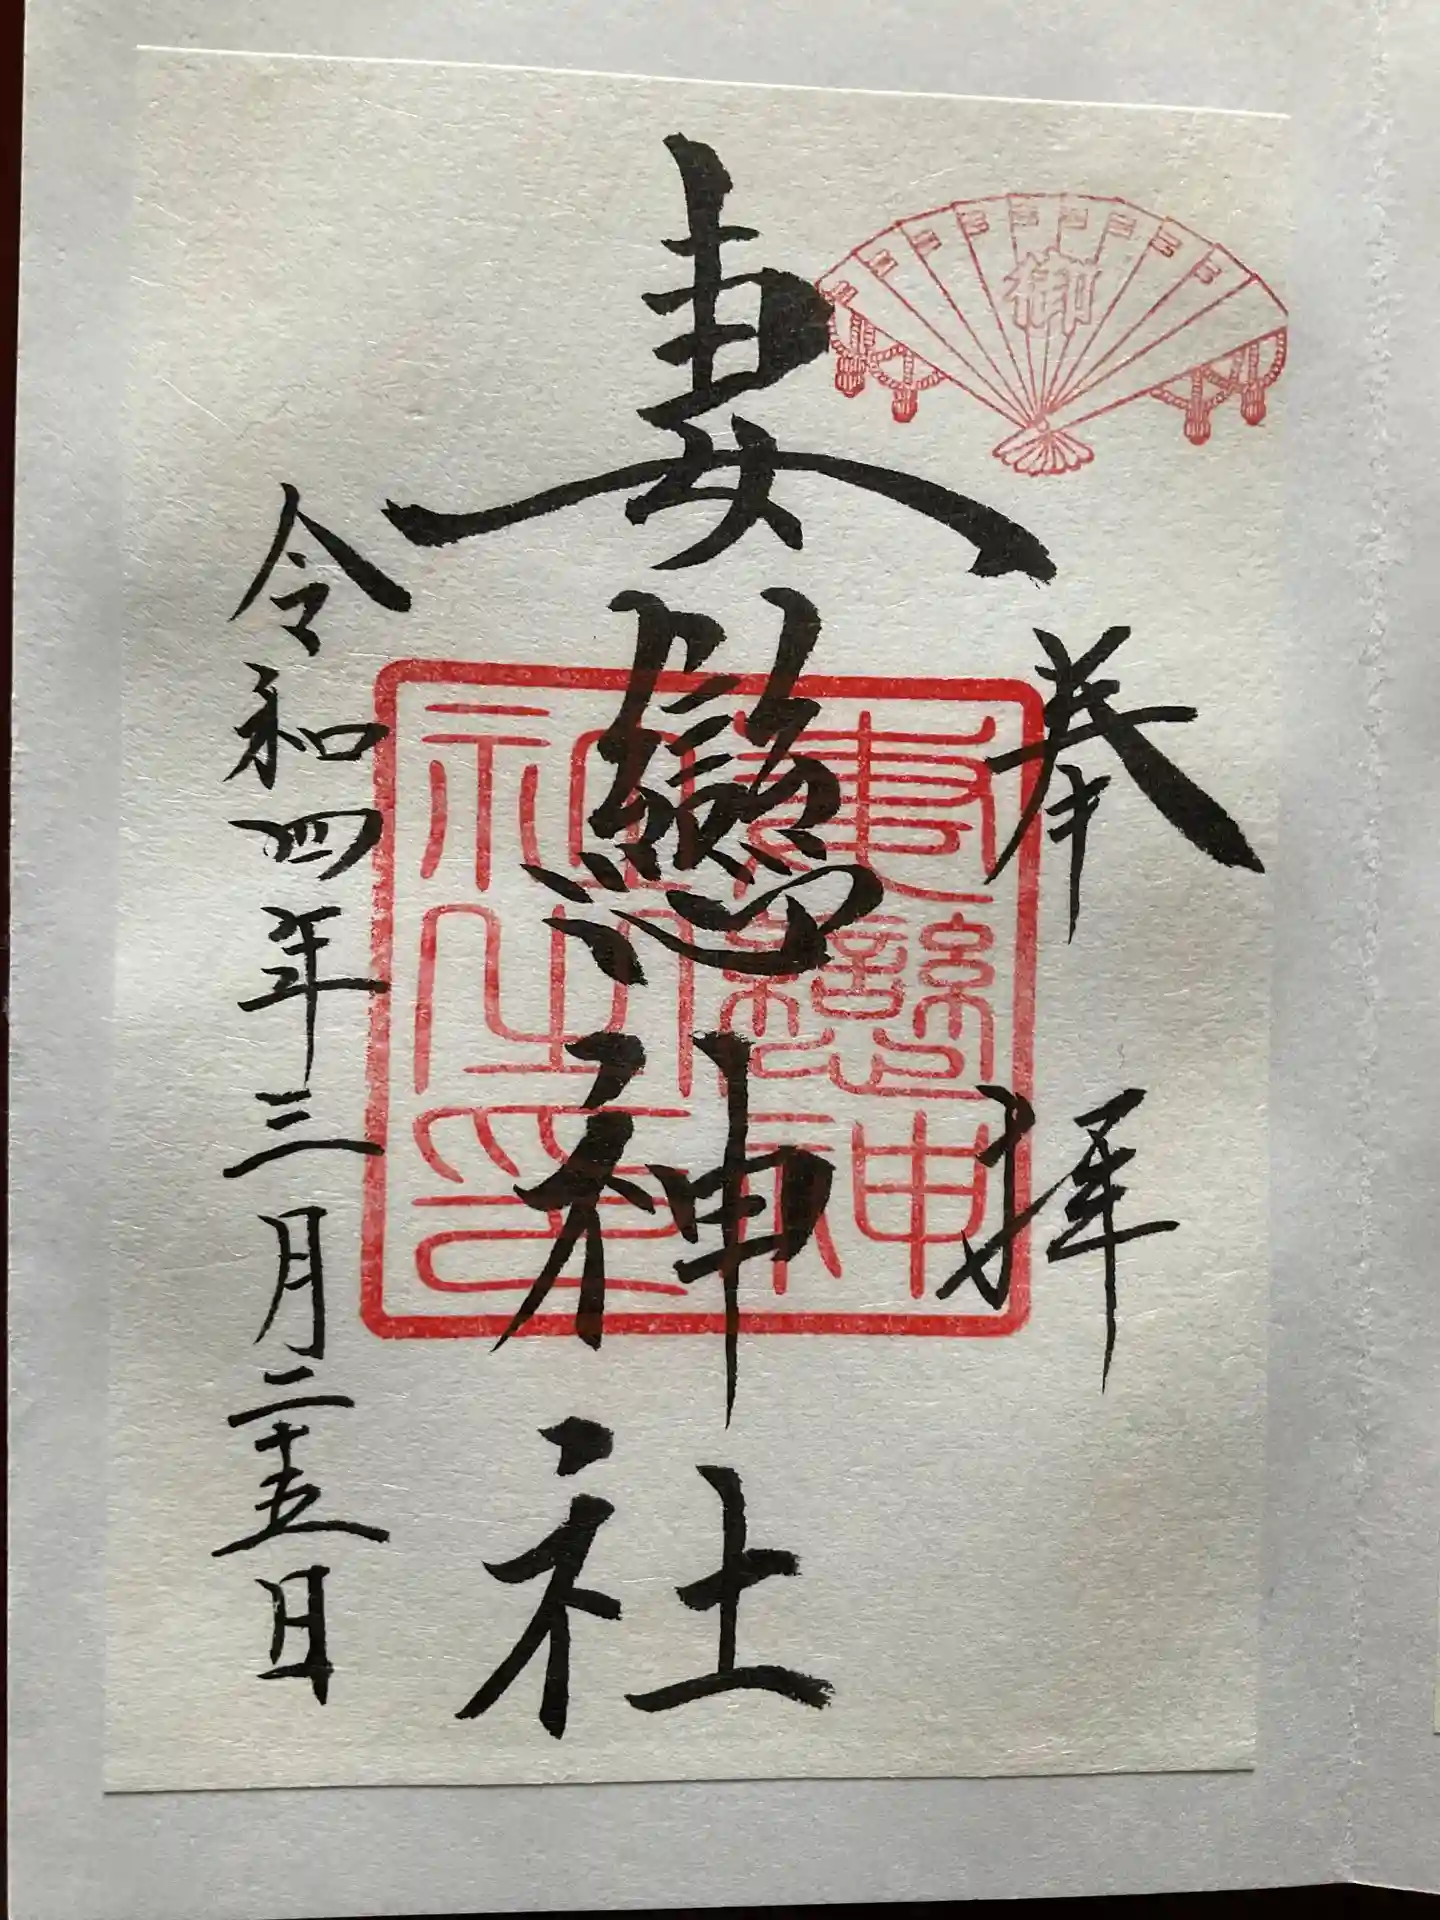 御
奉拝
妻戀神社
妻戀神社之印
令和四年三月二十五日